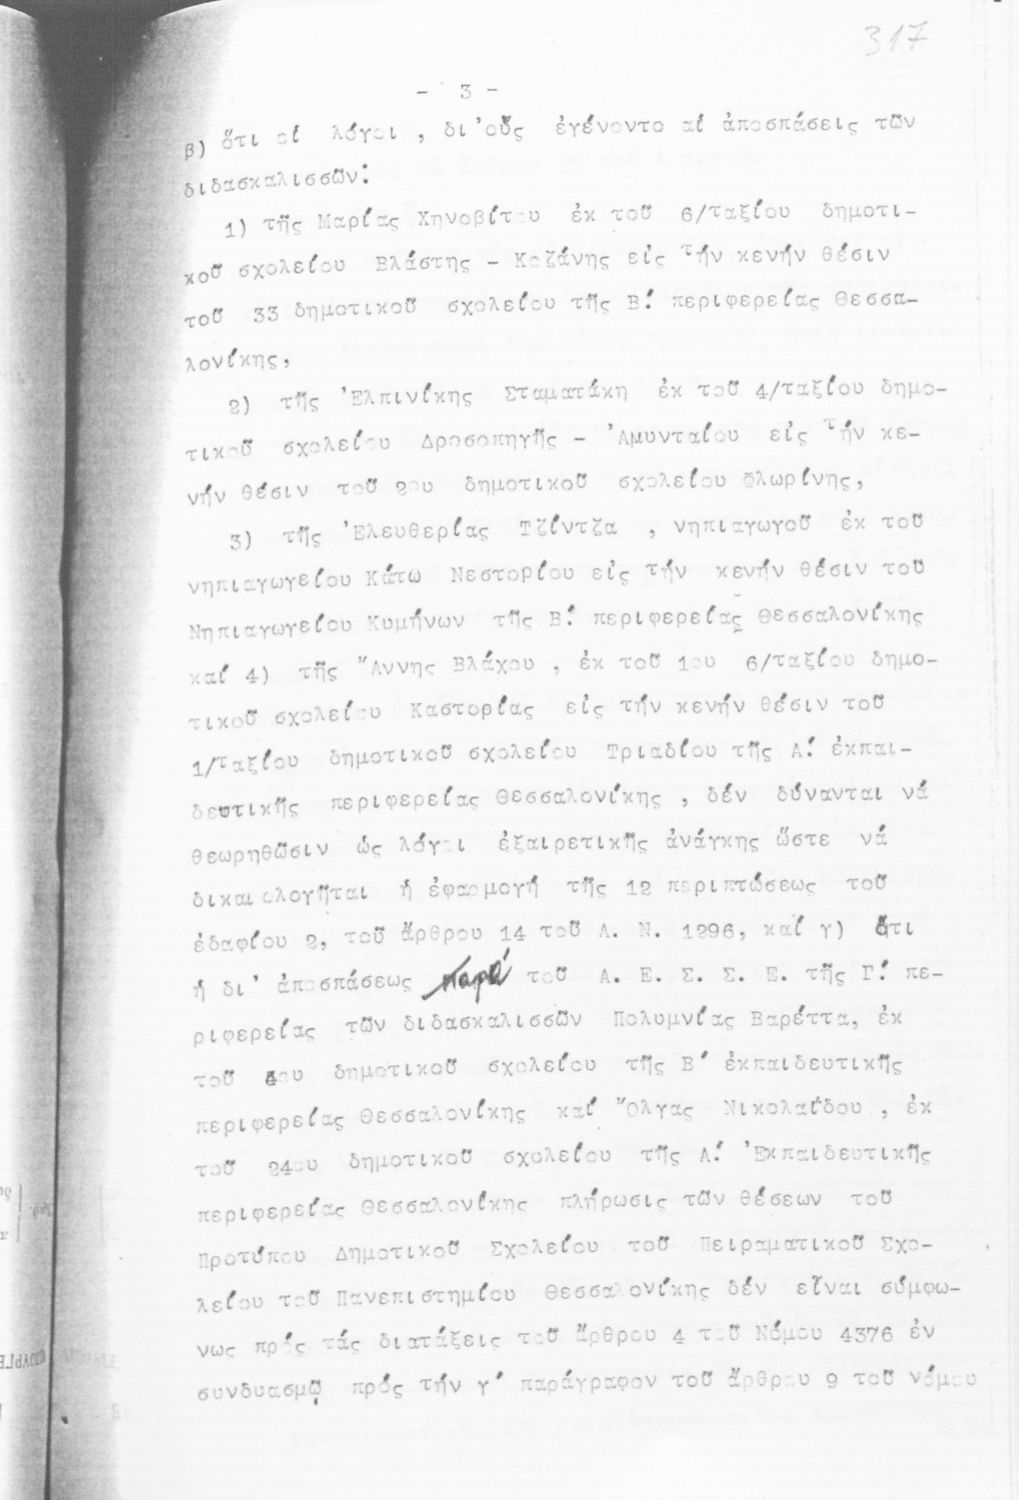 317
- 3 -
β) ὅτι οἱ λόγοι , δι'οὕς ἐγένοντο αἱ ἀποσπάσεις τῶν
διδασκαλισσῶν:
1) τῆς Μαρίας Χηνοβίτου ἐκ τοῦ 6/ταξίου δημοτι-
κοῦ σχολείου Βλάστης - Κοζάνης εἰς τήν κενήν θέσιν
τοῦ 33 δημοτικοῦ σχολείου τῆς Β! περιφερείας Θεσσα-
λονίκης,
2) τῆς Ἐλπινίκης Σταματάκη ἐκ τοῦ 4/ταξίου δημο-
τικοῦ σχολείου Δροσοπηγῆς - Ἀμυνταίου εἰς τήν κε-
νήν θέσιν τοῦ 2ου δημοτικοῦ σχολείου Φλωρίνης,
3) τῆς Ἐλευθερίας Τζίντζα , νηπιαγωγοῦ ἐκ τοῦ
νηπιαγωγείου Κάτω Νεστορίου εἰς τήν κενήν θέσιν τοῦ
Νηπιαγωγείου Κυμήνων τῆς Β! περιφερείας Θεσσαλονίκης
καί 4) τῆς Ἄννης Βλάχου , ἐκ τοῦ 1ου 6/ταξίου δημο-
τικοῦ σχολείου Καστορίας εἰς τήν κενήν θέσιν τοῦ
1/ταξίου δημοτικοῦ σχολείου Τριαδίου τῆς Α! ἐκπαι-
δευτικῆς περιφερείας Θεσσαλονίκης , δέν δύνανται νά
θεωρηθῶσιν ὡς λόγοι ἐξαιρετικῆς ἀνάγκης ὥστε νά
δικαιολογῆται ἡ ἐφαρμογή τῆς 12 περιπτώσεως τοῦ
ἐδαφίου 2, τοῦ ἄρθρου 14 τοῦ Α. Ν. 1296, καί γ) ὅτι
ἡ δι' ἀποσπάσεως παρά τοῦ Α. Ε. Σ. Σ. Ε. τῆς Γ! πε-
ριφερείας τῶν διδασκαλισσῶν Πολυμνίας Βαρέττα, ἐκ
τοῦ 4ου δημοτικοῦ σχολείου τῆς Β' ἐκπαιδευτικῆς
περιφερείας Θεσσαλονίκης καί Ὄλγας Νικολαΐδου , ἐκ
τοῦ 24ου δημοτικοῦ σχολείου τῆς Α! Ἐκπαιδευτικῆς
περιφερείας Θεσσαλονίκης πλήρωσις τῶν θέσεων τοῦ
Προτύπου Δημοτικοῦ Σχολείου τοῦ Πειραματικοῦ Σχο-
λείου τοῦ Πανεπιστημίου Θεσσαλονίκης δέν εἶναι σύμφω-
νως πρός τάς διατάξεις τοῦ ἄρθρου 4 τοῦ Νόμου 4376 ἐν
συνδυασμῷ πρός τήν γ' παράγραφον τοῦ ἄρθρου 9 τοῦ νόμου